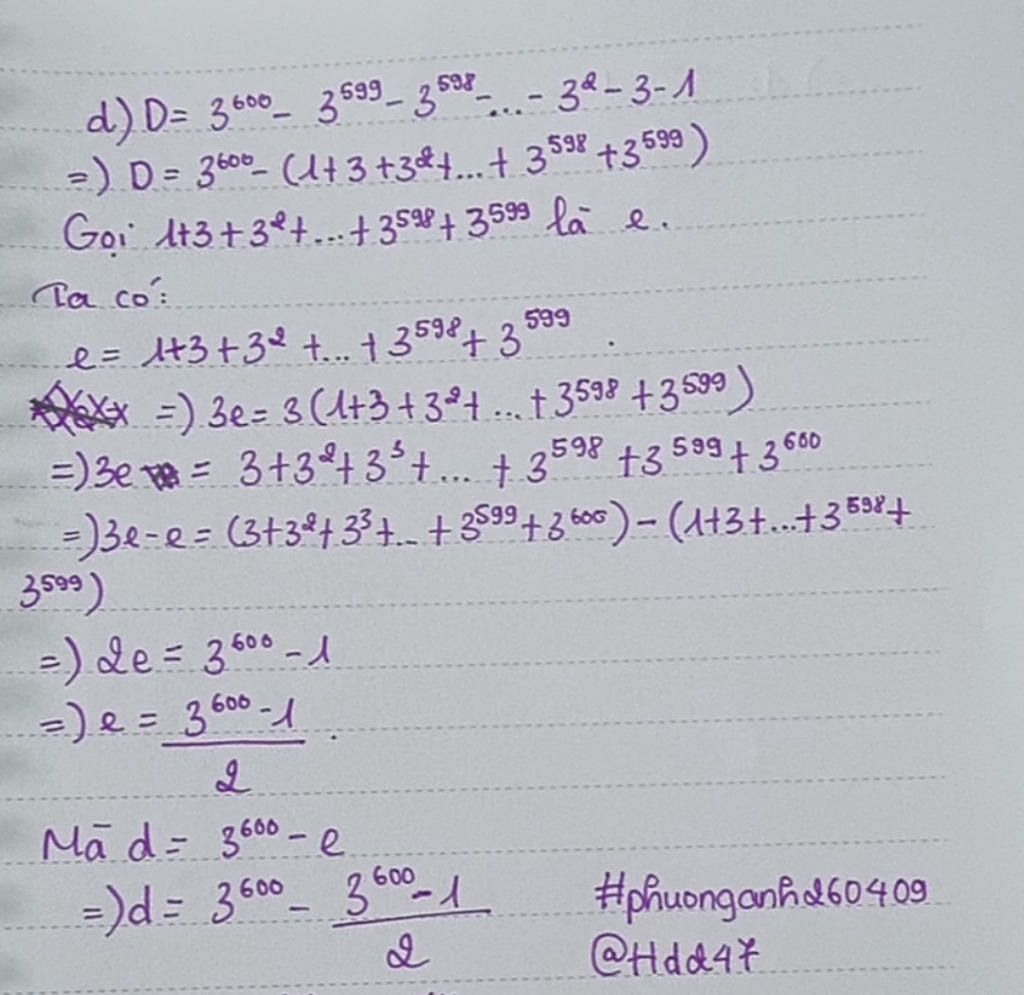 d) D = 3^600 - 3^599 - 3^598 - ... - 3^2 - 3 - 1
=) D = 3^600 - (1+3+3^2+...+3^598+3^599)
Gọi 1+3+3^2+...+3^598+3^599 là e.
Ta có:
e = 1+3+3^2+...+3^598+3^599.
=) 3e = 3(1+3+3^2+...+3^598+3^599)
=) 3e = 3+3^2+3^3+...+3^598+3^599+3^600
=) 3e-e = (3+3^2+3^3+...+3^599+3^600)-(1+3+...+3^598+
3^599)
=) 2e = 3^600 - 1
=) e = (3^600 - 1)/2.
Mà d = 3^600 - e
=) d = 3^600 - (3^600 - 1)/2
#phuonganh260409
@Hd247